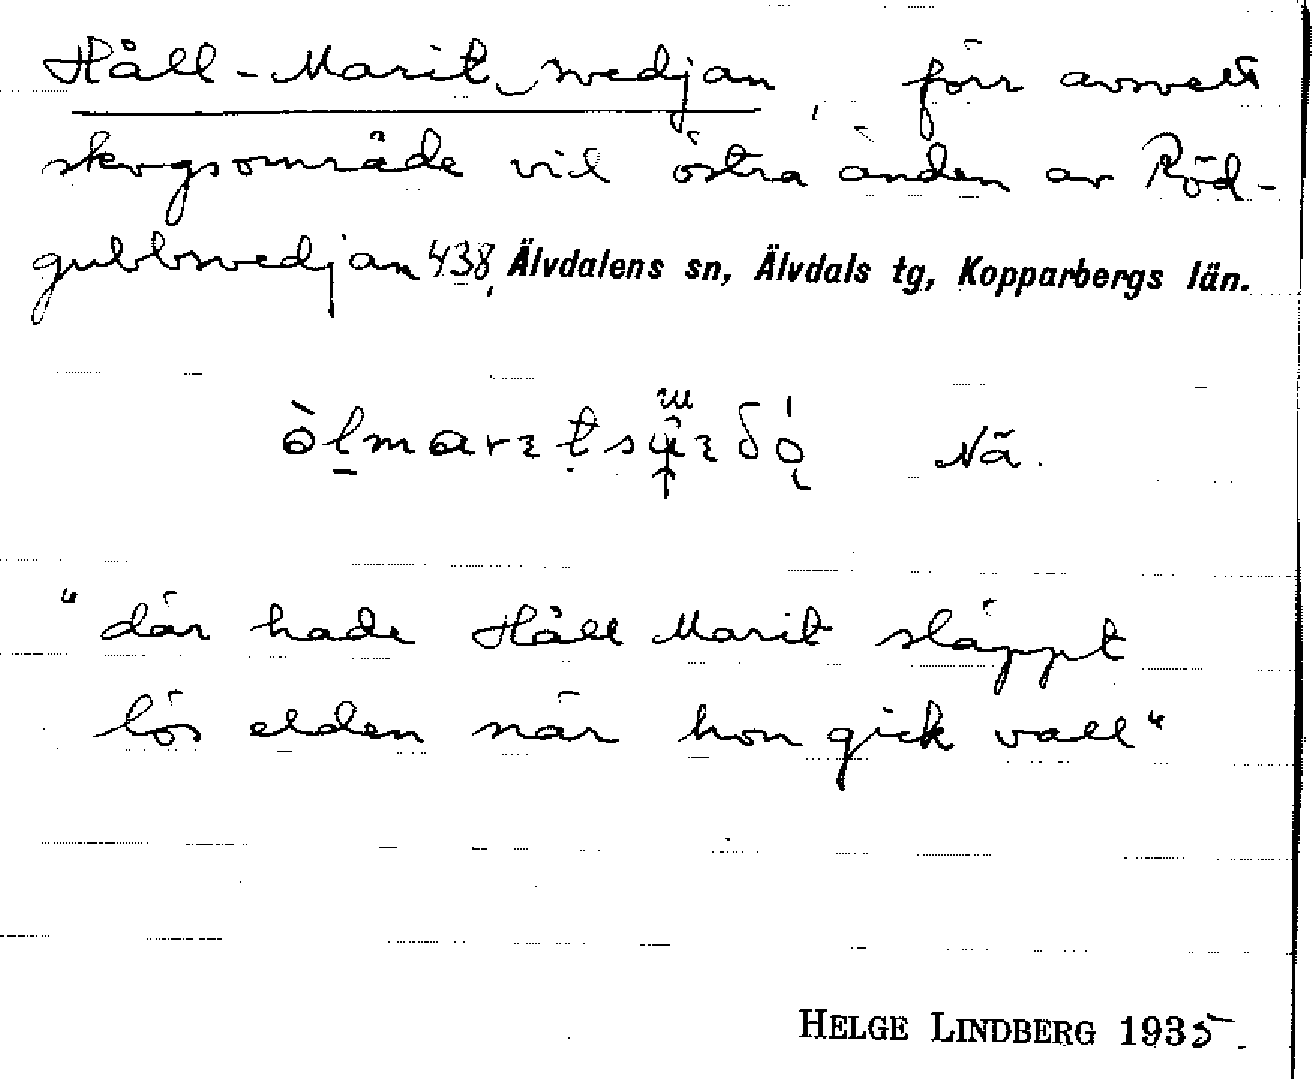 Håll-Marit svedjan, förr avsvett
skogsområde vid östra änden av Röd-
gubbsvedjan 438, Älvdalens sn, Älvdals tg, Kopparbergs län.
Nä.
"där hade Håll Marit släppt
lös elden när hon gick vall"
HELGE LINDBERG 1935.